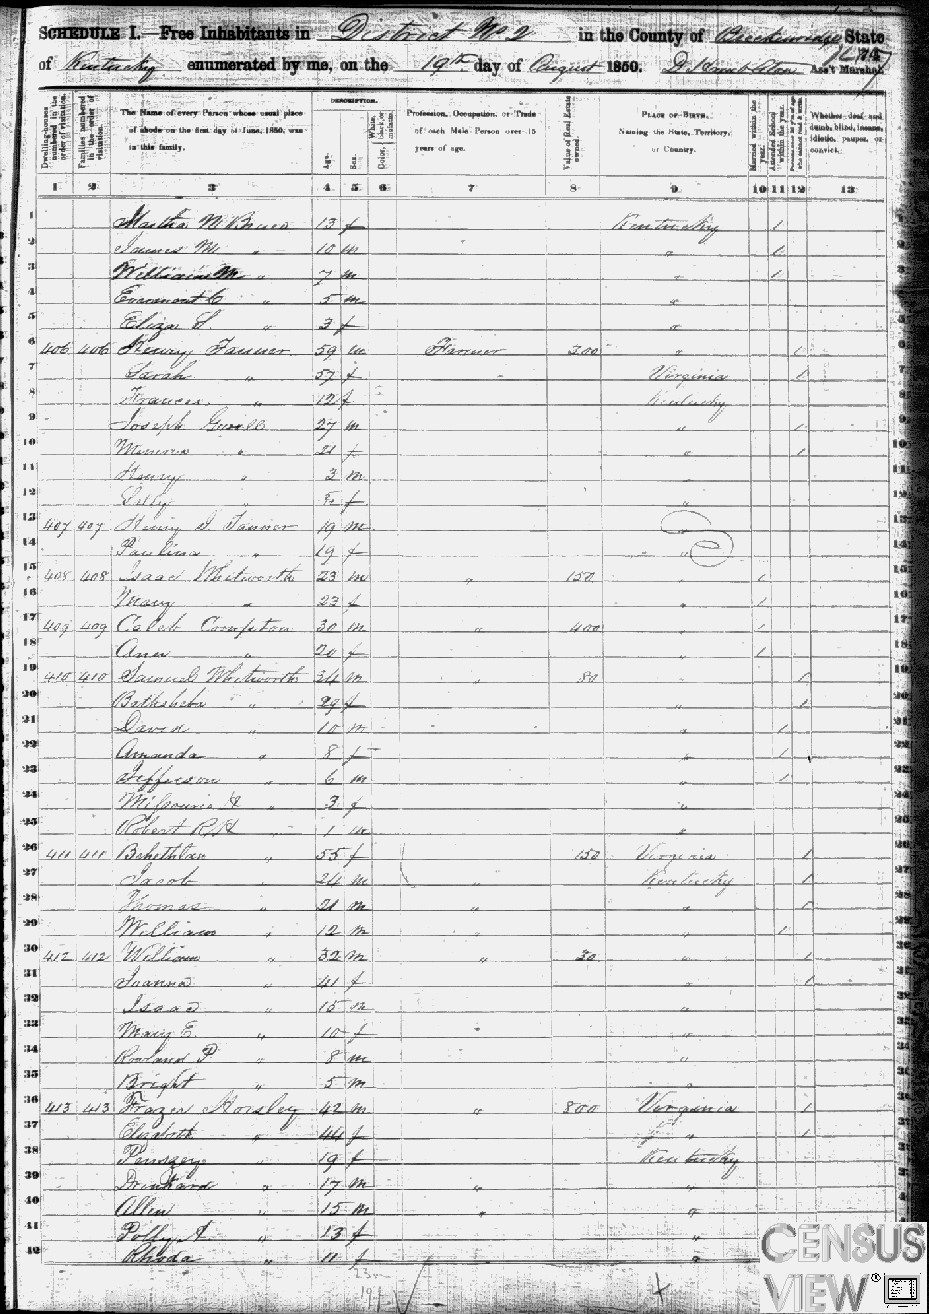 SCHEDULE I.—Free Inhabitants in District No 2 in the County of Breckinridge State
of Kentucky enumerated by me, on the 19th day of August 1850. Ass't Marshal.
DESCRIPTION.
Dwelling-houses numbered in the order of visitation.
Families numbered in the order of visitation.
The Name of every Person whose usual place of abode on the first day of June, 1850, was in this family.
Age.
Sex.
Color, White, black, or mulatto.
Profession, Occupation, or Trade of each Male Person over 15 years of age.
Value of Real Estate owned.
PLACE OF BIRTH. Naming the State, Territory, or Country.
Married within the year.
Attended School within the year.
Whether deaf and dumb, blind, insane, idiotic, pauper, or convict.
1 2 3 4 5 6 7 8 9 10 11 12 13
1 Martha 13 f Kentucky 1 1
2 James M " 10 m " 1 2
3 William M " 7 m " 1 3
4 " 5 m " 4
5 Eliza S. " 3 f " 5
6 406 406 Henry Tanner 59 m Farmer 300 " 1 6
7 Sarah " 57 f Virginia 1 7
8 Frances " 12 f Kentucky 8
9 Joseph 27 m " 1 9
10 " 21 f " 1 10
11 Henry " 3 m " 11
12 " f " 12
13 407 407 Henry Tanner 19 m " 13
14 Paulina " 19 f " 14
15 408 408 Isaac Whitworth 23 m " 150 " 1 15
16 Mary " 23 f " 1 16
17 409 409 Caleb Compton 30 m " 400 " 1 17
18 Ann " 20 f " 1 18
19 410 410 Samuel Whitworth 34 m " 80 " 1 19
20 Bathsheba " 29 f " 1 20
21 David " 10 m " 1 21
22 Amanda " 8 f " 1 22
23 Jefferson " 6 m " 1 23
24 Missouri A " 3 f " 24
25 Robert R H " 1 m " 25
26 411 411 " 55 f 150 Virginia 1 26
27 Jacob " 24 m " Kentucky 1 27
28 Thomas " 21 m " " 1 28
29 William " 12 m " " 1 29
30 412 412 William " 32 m " 30 " 1 30
31 Joanna " 41 f " 1 31
32 Isaac " 15 m " 32
33 Mary E. " 10 f " 33
34 Rowland P " 8 m " 34
35 Bright " 5 m " 35
36 413 413 Frazer Horsley 42 m " 800 Virginia 1 36
37 Elizabeth " 44 f " 1 37
38 " 19 f Kentucky 38
39 " 17 m " " 39
40 Allen " 15 m " " 40
41 Polly A " 13 f " 41
42 Rhoda " 11 f " 42
CENSUS
VIEW®